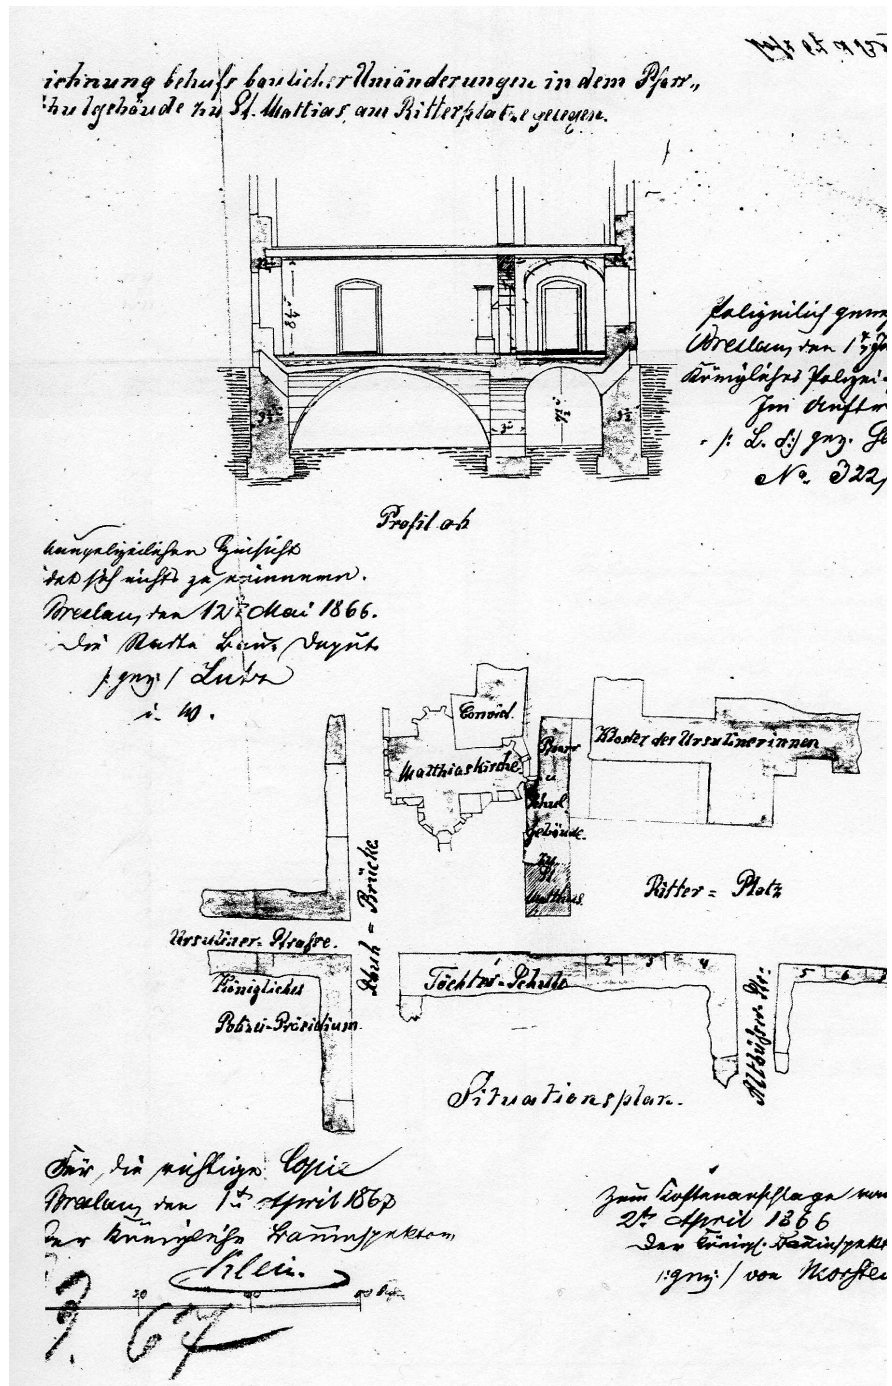 ichnung behufs baulicher Umänderungen in dem Pfarr-,
hulgebäude zu St. Mattias, am Ritterplatze gelegen.
Polizeilich
Breslau, den 1
Königliches Polizei-
Im Auftr
/: L. S :/ gez.
No. 322
8½'
3½'
3'
7½'
3½'
Profil a b
baupolizeilicher Hinsicht
det sich nichts zu erinnern.
Breslau, den 12t Mai 1866.
Die Stadt Bau-Deput.
/: gez: /
i. W.
Convict.
Matthiaskirche.
Pfarr
u
Schul
Gebäude.
zu
St.
Matthias.
Kloster der Ursulinerinnen
Ritter = Platz
Ursuliner-Strasse.
Schuh = Brücke
Königliches
Polizei-Präsidium.
Töchter-Schule
2 3 4
5 6
Altbüßer-Str.
Situationsplan.
Für die richtige Copie
Breslau, den 1t April 1867
Der Königliche Bauinspektor
Klein.
Zum Kostenanschlage vom
2ten April 1866
Der Königl. Bauinspekt
/: gez: / von
67